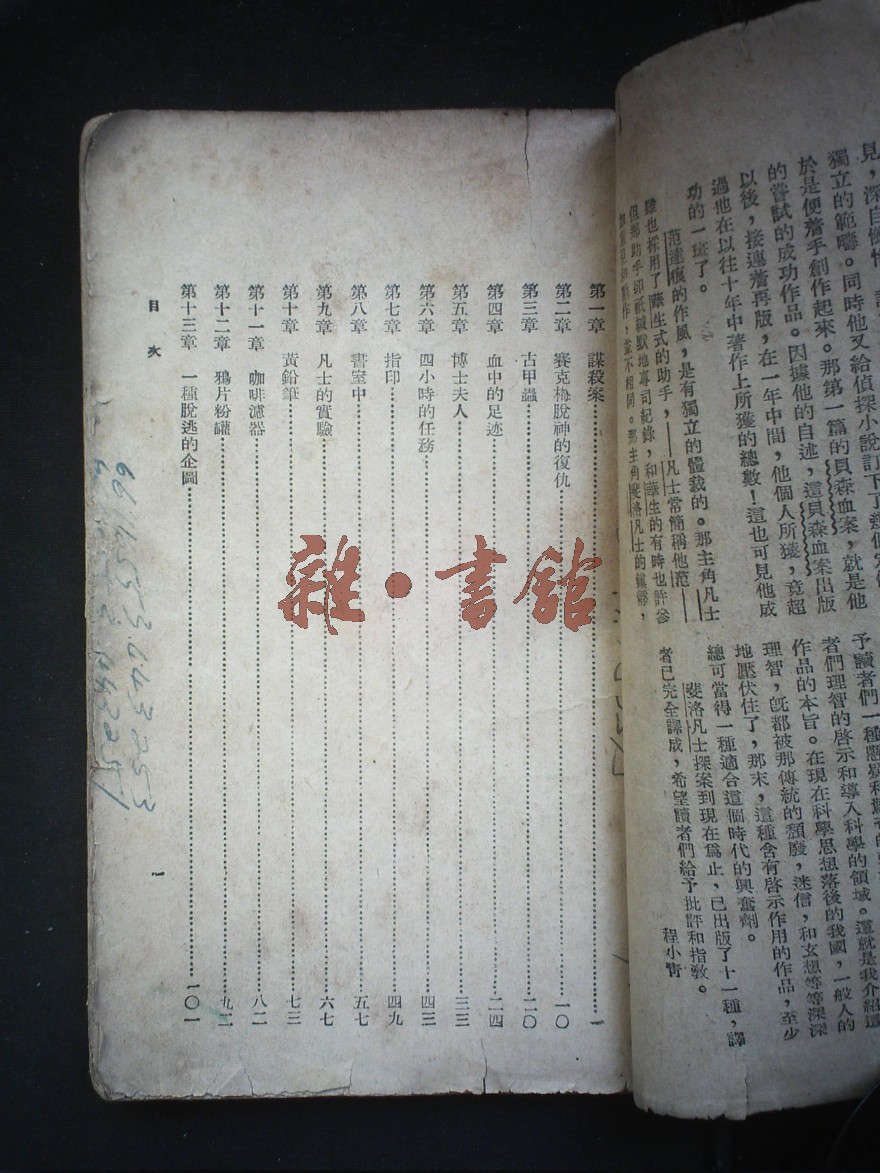 見，深自慚愧
獨立的範疇。同時他又給偵探小說訂下了
於是便着手創作起來。那第一篇的貝森血案，就是他
的嘗試的成功作品。因據他的自述，這貝森血案出版
以後，接連着再版，在一年中間，他個人所獲，竟超
過他在以往十年中著作上所獲的總數！這也可見他成
功的一斑了。
范達痕的作風，是有獨立的體裁的。那主角凡士
雖也採用了華生式的助手，——凡士常簡稱他范——
但那助手却祇緘默地專司紀錄，和華生的有時也許參
並不相同。那主角斐洛凡士的
予讀者們一種懸疑和驚奇的
者們理智的啓示和導入科學的領域。這就是我介紹這
作品的本旨。在現在科學思想落後的我國，一般人的
理智，旣都被那傳統的頹廢，迷信，和玄想等等深深
地壓伏住了，那末，這種含有啓示作用的作品，至少
總可當得一種適合這個時代的興奮劑。
斐洛凡士探案到現在爲止，已出版了十一種，譯
者已完全譯成，希望讀者們給予批評和指敎。
程小青
第一章 謀殺案 一
第二章 賽克梅脫神的復仇 一〇
第三章 古甲蟲 二〇
第四章 血中的足迹 二四
第五章 博士夫人 三三
第六章 四小時的任務 四三
第七章 指印 四九
第八章 書室中 五七
第九章 凡士的實驗 六七
第十章 黃鉛筆 七三
第十一章 咖啡濾器 八二
第十二章 鴉片粉罐 九二
第十三章 一種脫逃的企圖 一〇一
目次 一
雜·書館